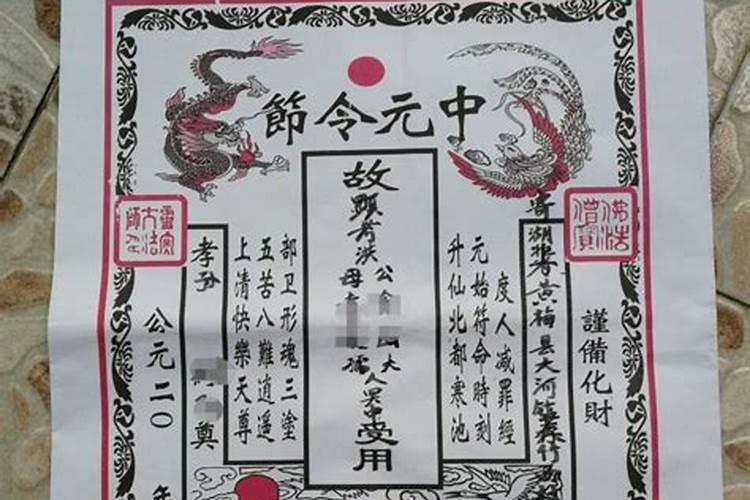 中元令節
佛法僧寶
謹備化財
寄湖北黄梅县大河镇
度人減罪經
元始符命時刻
升仙北都寒池
故顯考洪公大人
母孺
受用
部卫形魂三塗
五苦八難逍遥
上清快樂天尊
孝孙
奠
靈寶大法師印
公元二〇年